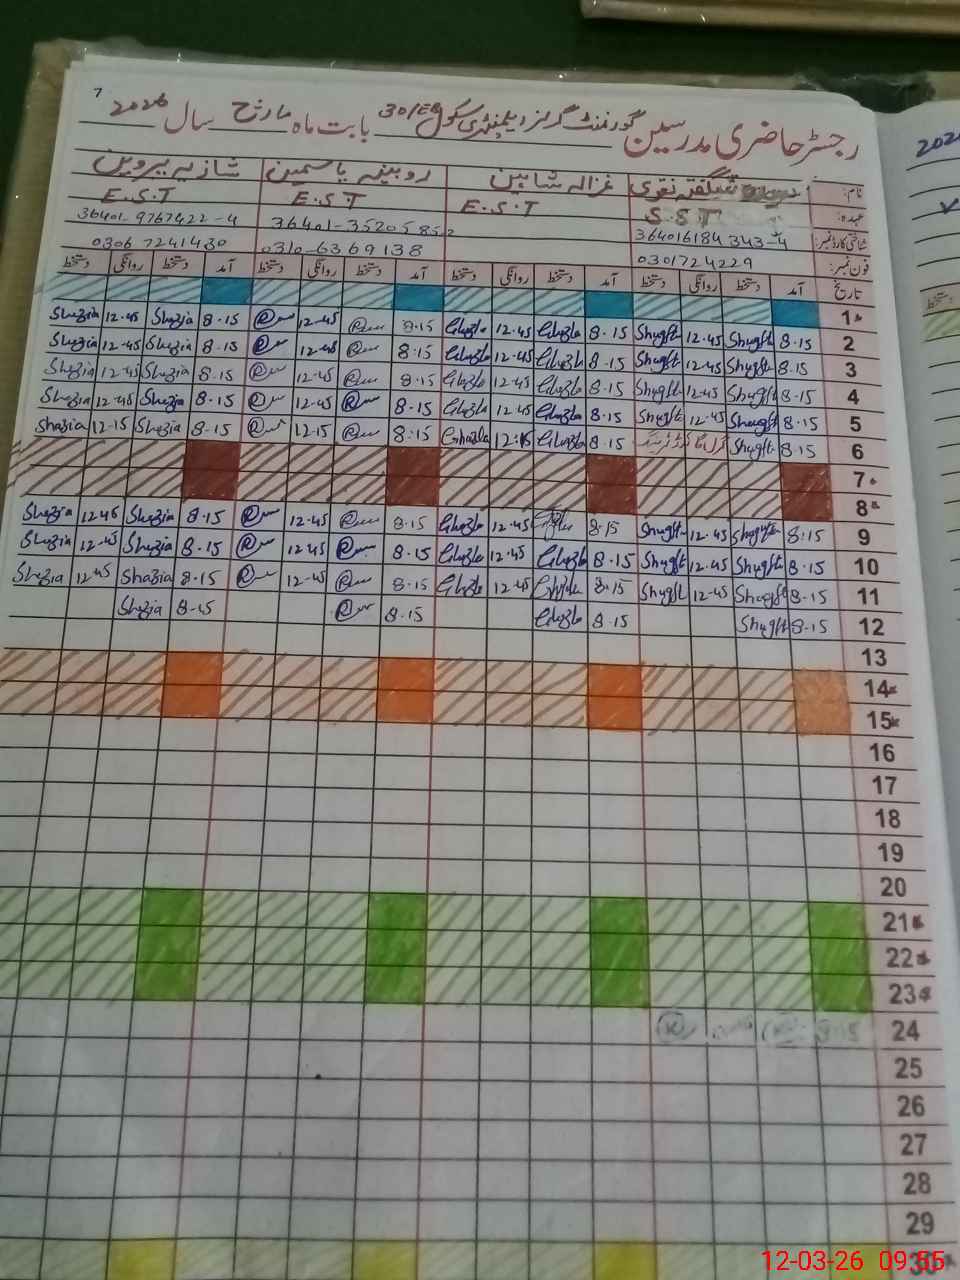 7
رجسٹر حاضری مدرسین گورنمنٹ گرلز ایلیمنٹری سکول 30/EB بابت ماہ مارچ سال 2026
نام: شگفتہ نقوی غزالہ شاہین روبینہ یاسمین شازیہ پروین
عہدہ: S.S.T E.S.T E.S.T E.S.T
شناختی کارڈ نمبر: 364016184343-4 36401-9767422-4
فون نمبر: 0301724229 0310-6369138 0306 7241430
تاریخ آمد دستخط روانگی دستخط آمد دستخط روانگی دستخط آمد دستخط روانگی دستخط آمد دستخط روانگی دستخط
1*
Shazia 12-45 Shazia 8-15 12-45 8-15 Ghazla 12-45 Ghazla 8-15 Shugft 12-45 Shugft 8-15 2
Shazia 12-45 Shazia 8-15 12-45 8-15 Ghazla 12-45 Ghazla 8-15 Shugft 12-45 Shugft 8-15 3
Shazia 12-45 Shazia 8-15 12-45 8-15 Ghazla 12-45 Ghazla 8-15 Shugft 12-45 Shugft 8-15 4
Shazia 12-45 Shazia 8-15 12-45 8-15 Ghazla 12-45 Ghazla 8-15 Shugft 12-45 Shugft 8-15 5
Shazia 12-15 Shazia 8-15 12-15 8-15 Ghazla 12-15 Ghazla 8-15 Shugft 8-15 6
7*
8*
Shazia 12-45 Shazia 8-15 12-45 8-15 Ghazla 12-45 8-15 Shugft 12-45 Shugft 8-15 9
Shazia 12-45 Shazia 8-15 12-45 8-15 Ghazla 12-45 Ghazla 8-15 Shugft 12-45 Shugft 8-15 10
Shazia 12-45 Shazia 8-15 12-45 8-15 Ghazla 12-45 Ghazla 8-15 Shugft 12-45 Shugft 8-15 11
Shazia 8-15 8-15 Ghazla 8-15 Shugft 8-15 12
13
14*
15*
16
17
18
19
20
21*
22*
23*
8-15 24
25
26
27
28
29
30*
دستخط
12-03-26 09:55